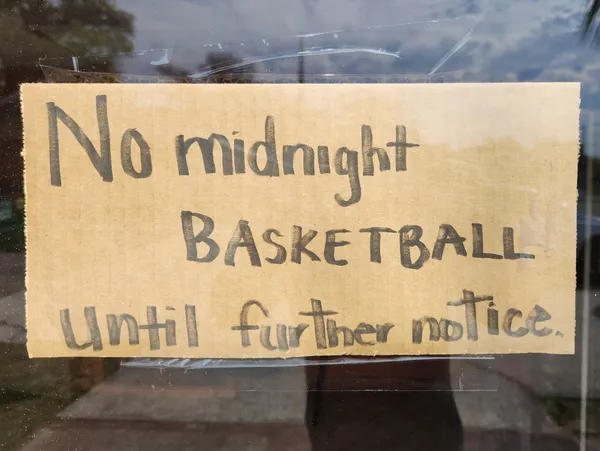 No midnight
BASKETBALL
until further notice.